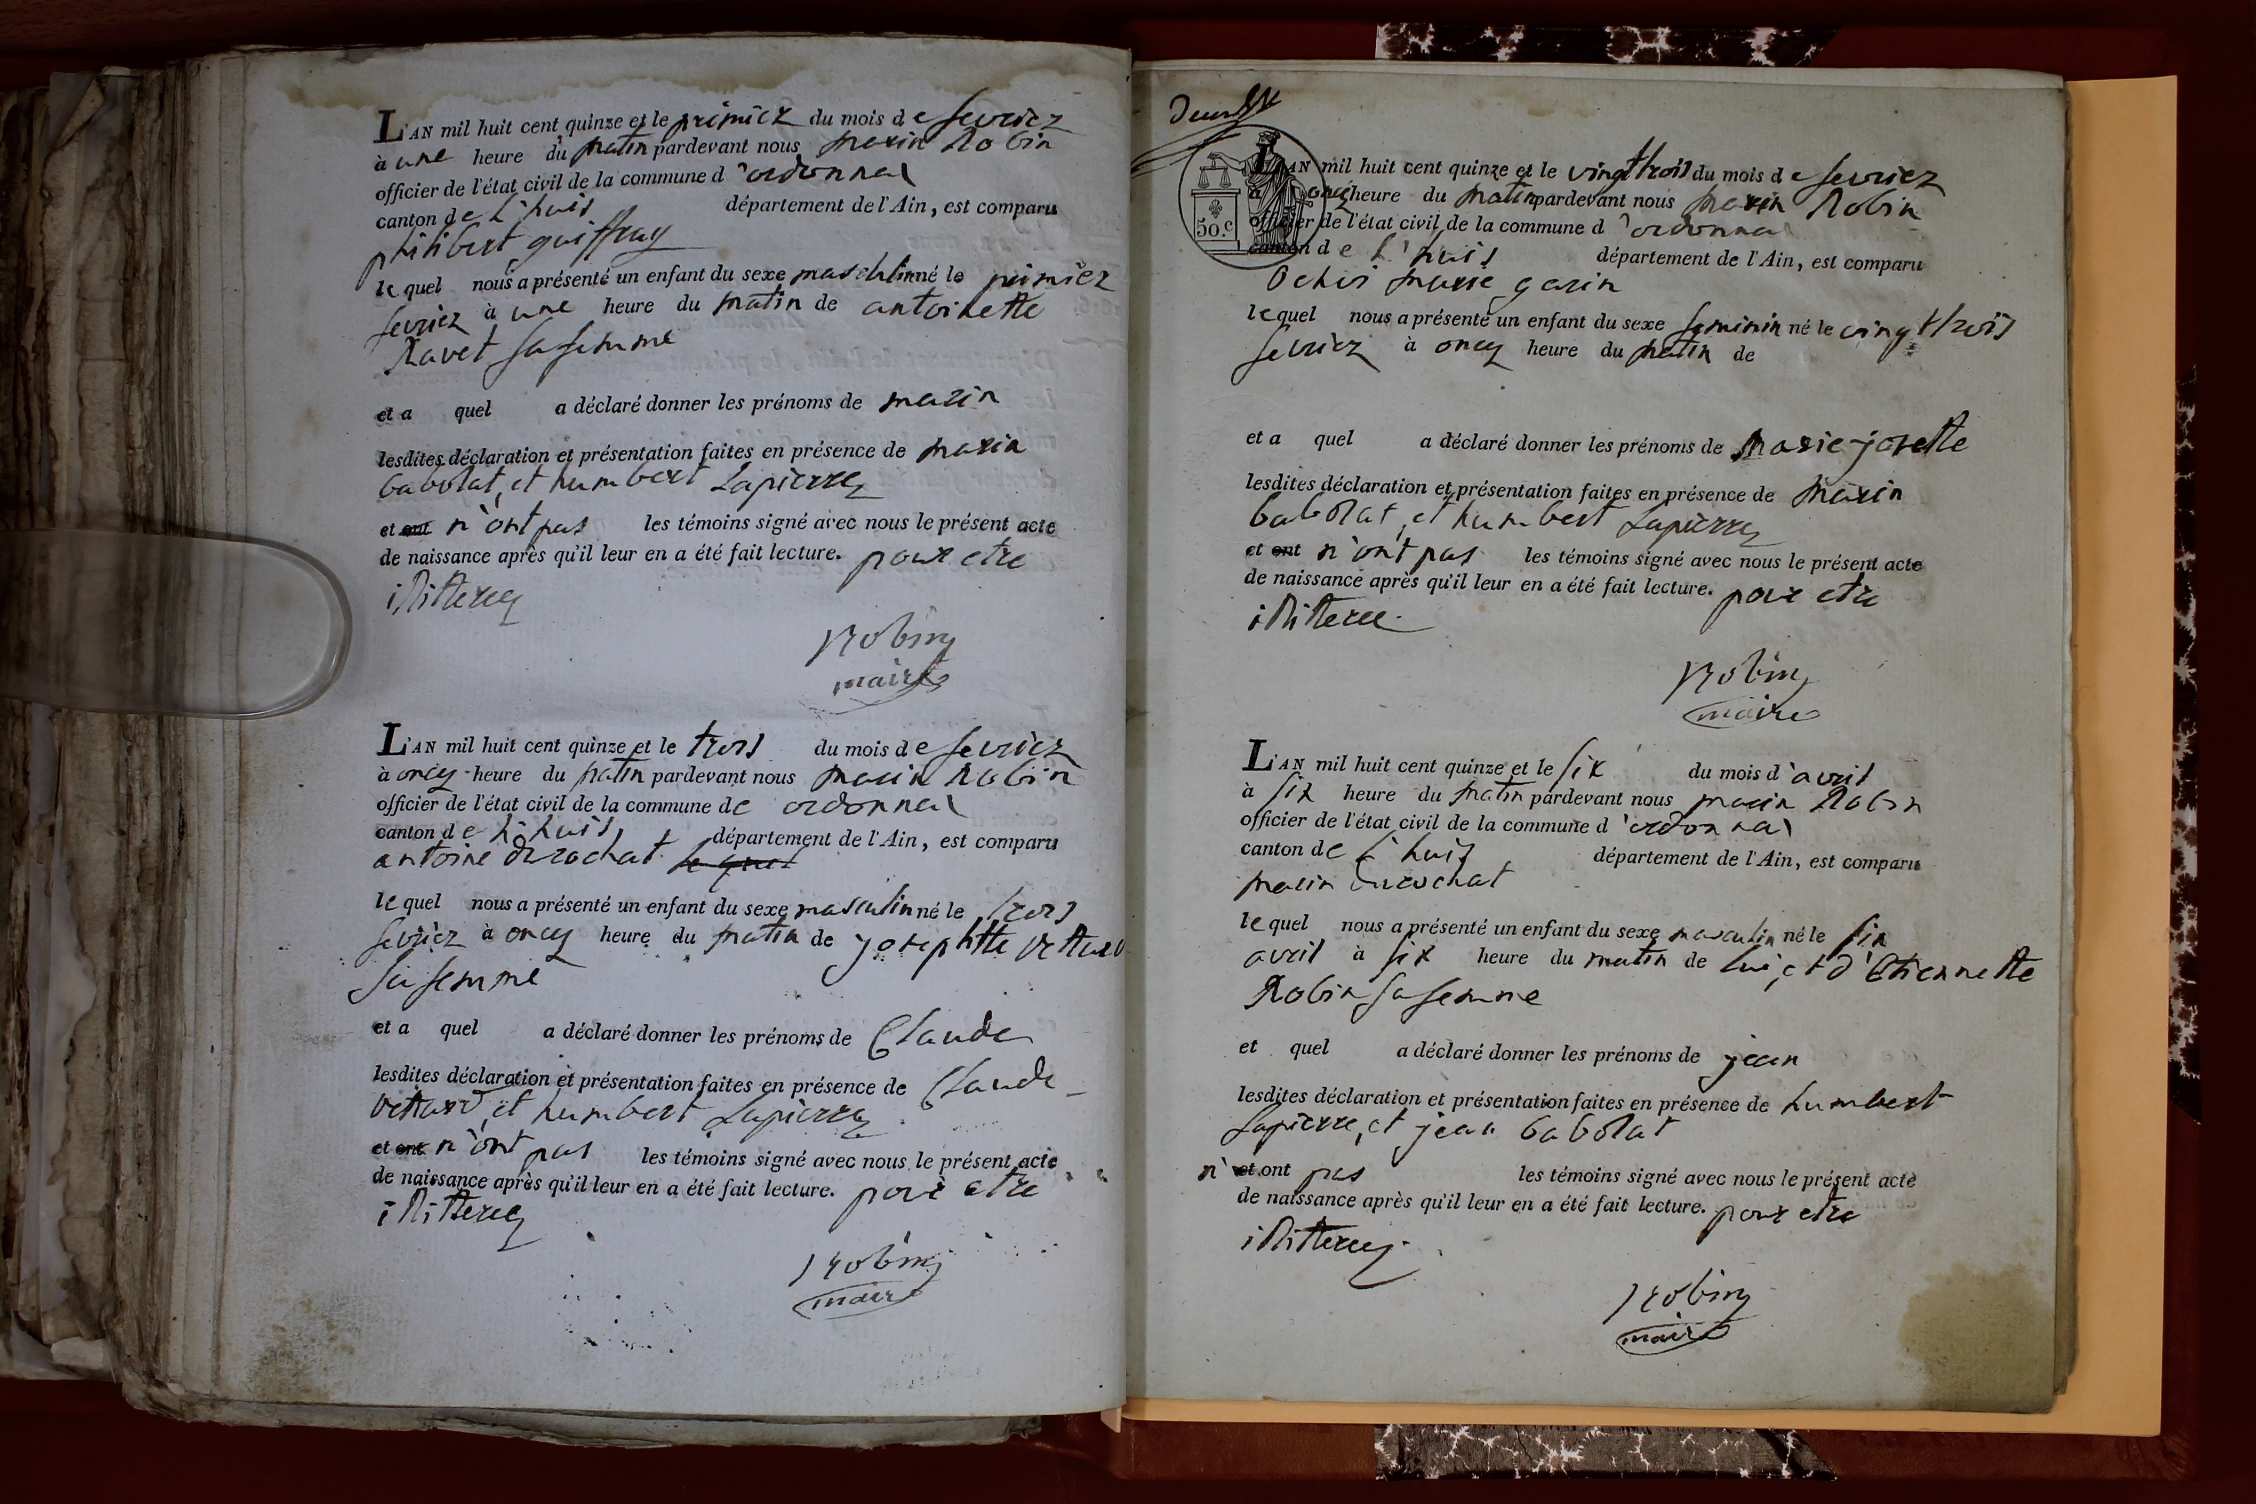 L'AN mil huit cent quinze et le primiez du mois de fevriez
à une heure du matin pardevant nous marin Robin
officier de l'état civil de la commune d'ordonnas
canton de L'huis département de l'Ain, est comparu
philibert guiffray
lequel nous a présenté un enfant du sexe masculin né le primiez
fevriez à une heure du matin de antoinette
Ravet sa femme
et a quel a déclaré donner les prénoms de marin
lesdites déclaration et présentation faites en présence de marin
babolat, et humbert Lapierre
et ont n'ont pas les témoins signé avec nous le présent acte
de naissance après qu'il leur en a été fait lecture. pour etre
illitterez
Robin
maire
L'AN mil huit cent quinze et le trois du mois de fevriez
à onez heure du matin pardevant nous marin Robin
officier de l'état civil de la commune de ordonnas
canton de L'huis département de l'Ain, est comparu
antoine durochat le quel
lequel nous a présenté un enfant du sexe masculin né le trois
fevriez à onez heure du matin de josephtte vettard
sa femme
et a quel a déclaré donner les prénoms de Claude
lesdites déclaration et présentation faites en présence de Claude
vettard, et humbert Lapierre
et ont n'ont pas les témoins signé avec nous le présent acte
de naissance après qu'il leur en a été fait lecture. pour etre
illitterez
Robin
maire
50.c
L'AN mil huit cent quinze et le vingt trois du mois de fevriez
à onez heure du matin pardevant nous marin Robin
officier de l'état civil de la commune d'ordonnas
canton de L'huis département de l'Ain, est comparu
marie garin
lequel nous a présenté un enfant du sexe feminin né le vingt trois
fevriez à onez heure du matin de
et a quel a déclaré donner les prénoms de Marie-josette
lesdites déclaration et présentation faites en présence de marin
babolat, et humbert Lapierre
et ont n'ont pas les témoins signé avec nous le présent acte
de naissance après qu'il leur en a été fait lecture. pour etre
illitteree.
Robin
maire
L'AN mil huit cent quinze et le six du mois d'avril
à six heure du matin pardevant nous marin Robin
officier de l'état civil de la commune d'ordonnas
canton de L'huis département de l'Ain, est comparu
marin durochat
lequel nous a présenté un enfant du sexe masculin né le six
avril à six heure du matin de lui, et d'Etiennette
Robin sa femme
et quel a déclaré donner les prénoms de jean
lesdites déclaration et présentation faites en présence de humbert
Lapierre, et jean babolat
n' et ont pas les témoins signé avec nous le présent acte
de naissance après qu'il leur en a été fait lecture. pour etre
illitterez.
Robin
maire